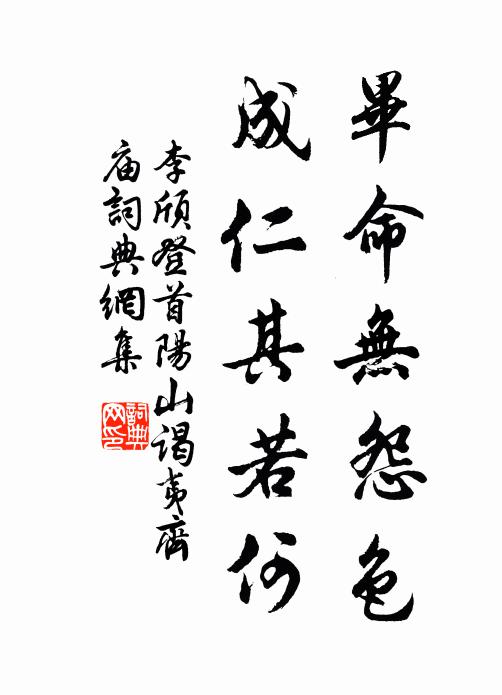 畢命無怨色
成仁其若何
李頎登首陽山謁夷齊
庙詞典網集
詞典
网印